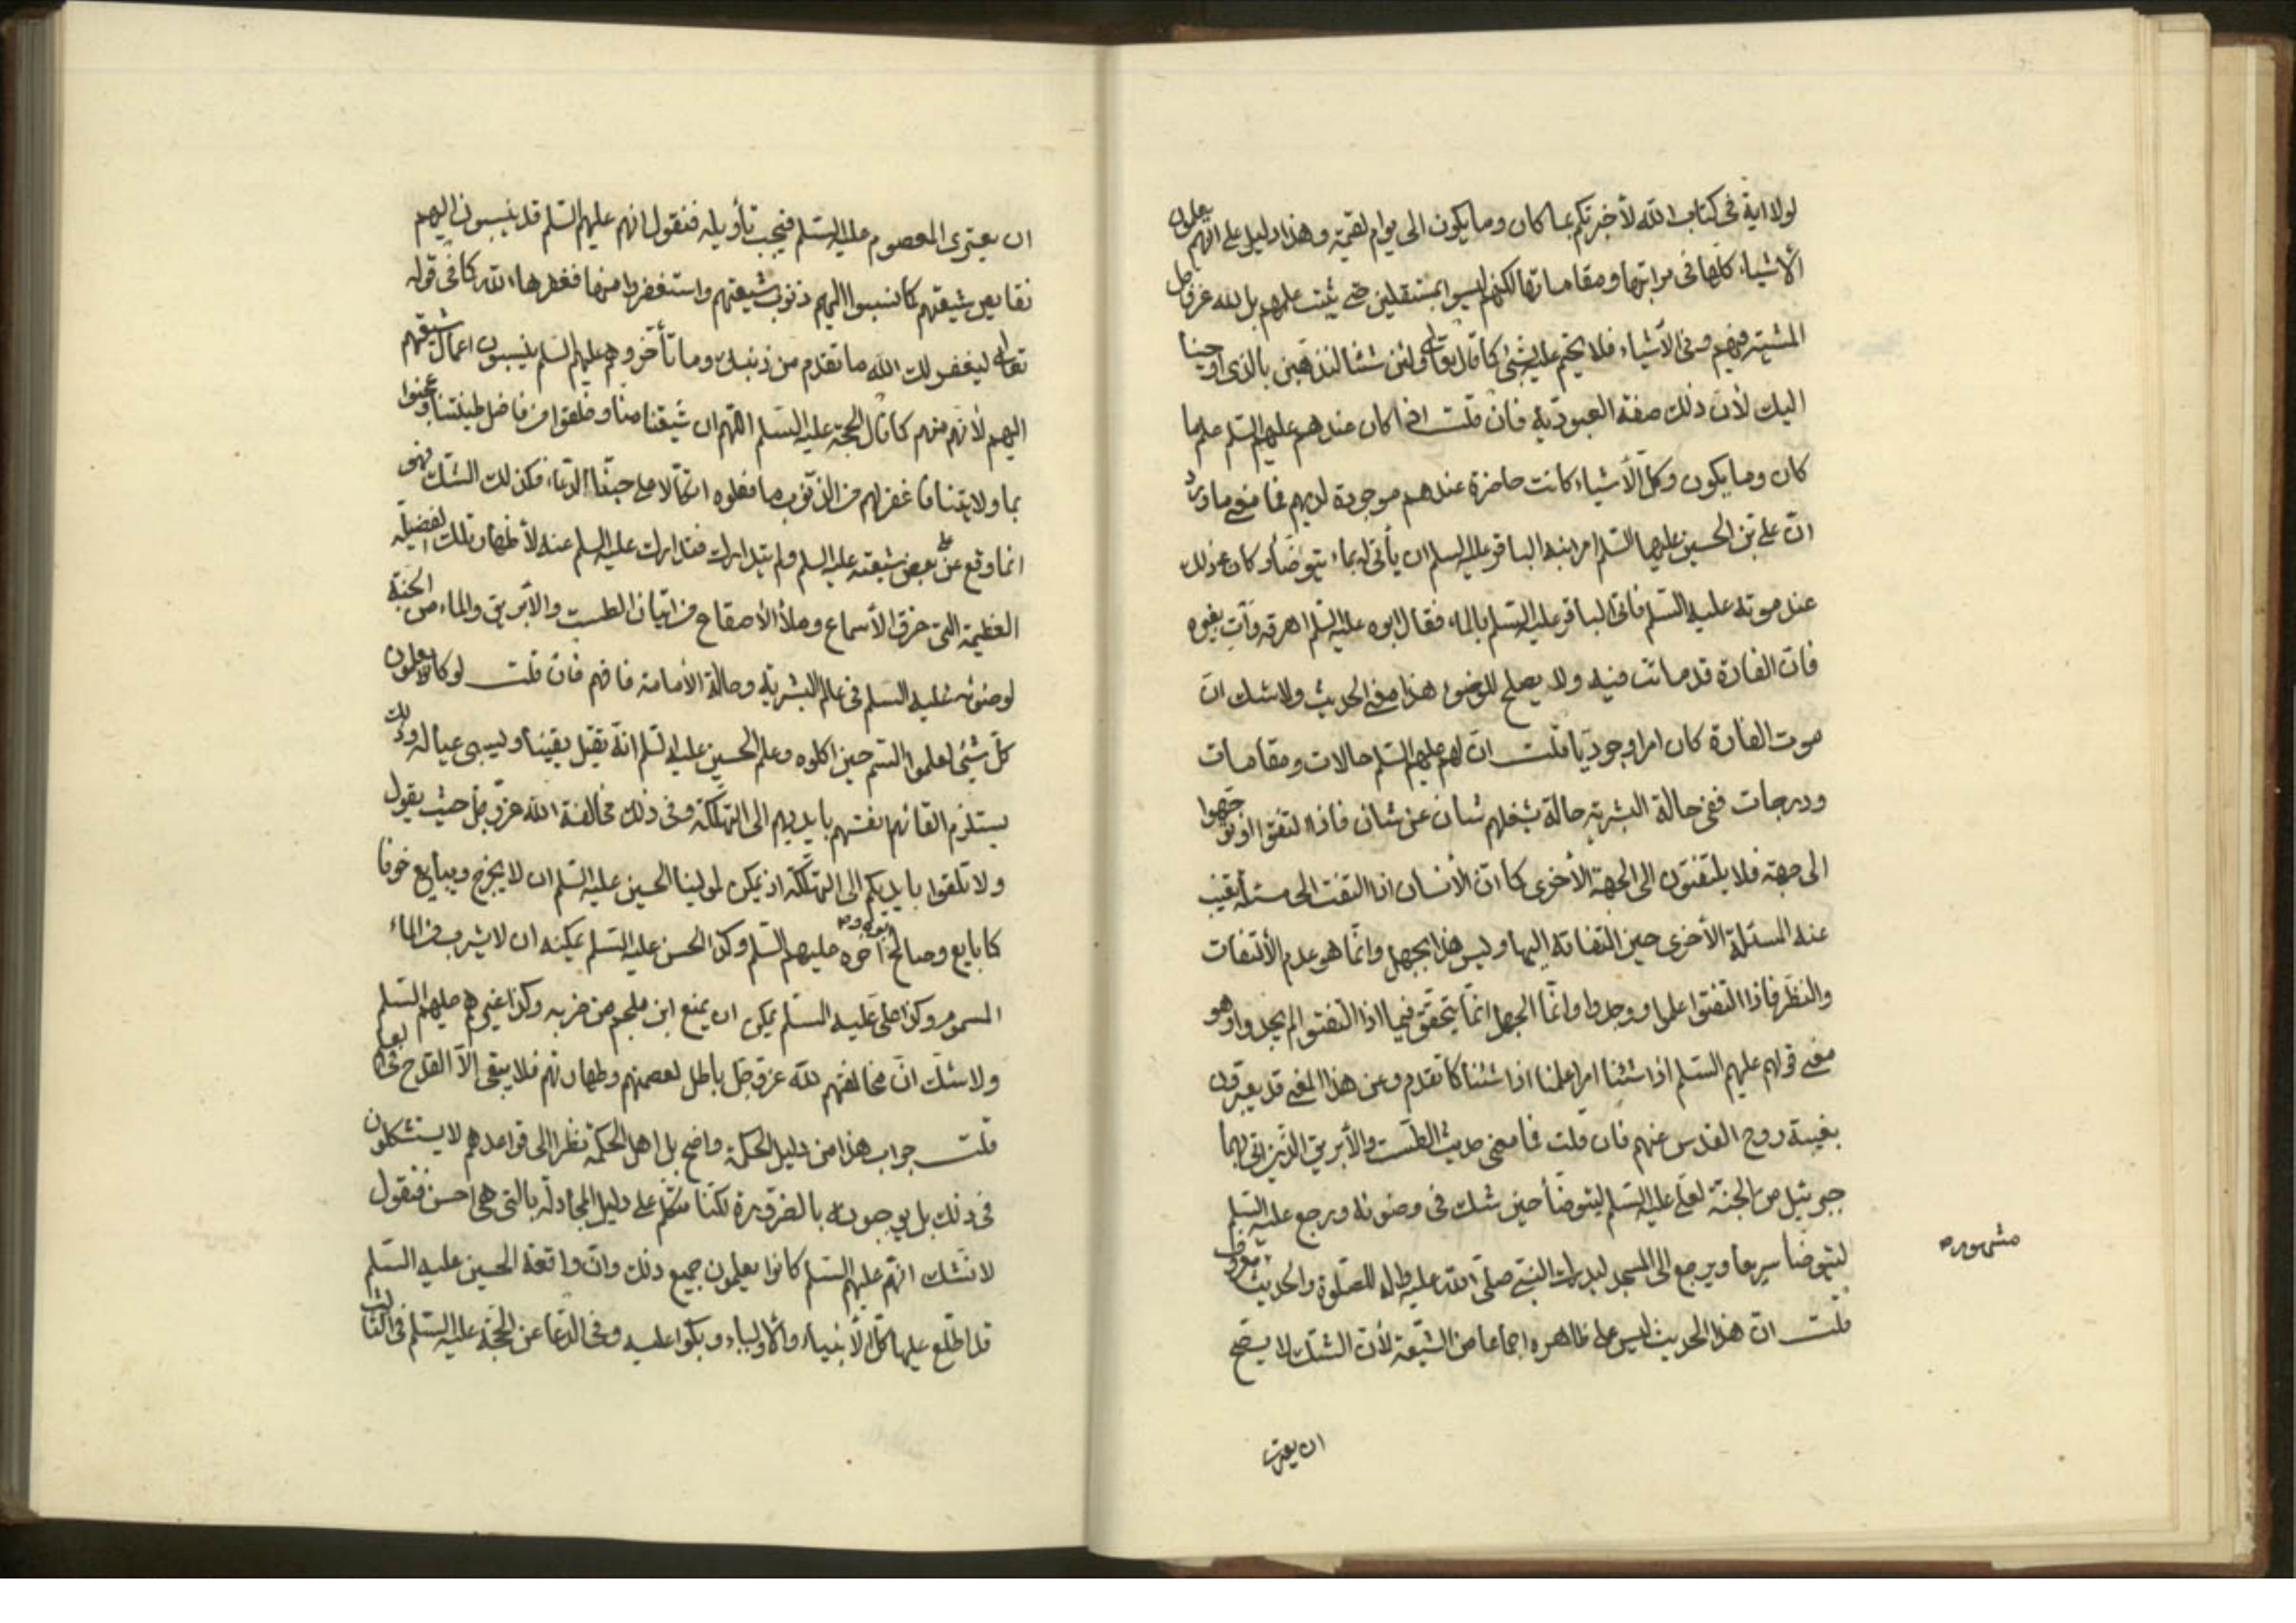 لولا اية فى كتاب الله لأخبرتكم بما كان وما يكون الى يوم القيمة وهذا دليل على انهم يعلمون
الأشياء كلها فى مراتبها ومقاماتها لكنهم ليسوا بمستقلين حتى يثبت عليهم بل لله عز وجل
المشية فيهم وفى الأشياء فلا يحتم عليه شيئى كما قال تعالى ولئن شئنا لنذهبن بالذى اوحينا
اليك لأن ذلك صفة العبودية فان قلت اذا كان عندهم عليهم السلم علم ما
كان وما يكون وكل الأشياء كانت حاضرة عندهم موجودة لديهم فما معنى ما ورد
ان على بن الحسين عليهما السلم امر ابنه الباقر عليه السلم ان يأتى له بماء يتوضأ وكان ذلك
عند موته عليه السلم فاتى الباقر عليه السلم بالماء فقال ابوه عليه السلم اهرقه وآت بغيره
فان الفارة قد ماتت فيه ولا يصلح للوضوء هذا معنى الحديث ولا شك ان
موت الفارة كان امرا وجوديا قلت ان لهم عليهم السلم حالات ومقامات
ودرجات ففى حالة البشرية حالة يشغلهم شان عن شان فاذا التفتوا او توجهوا
الى جهة فلا يلتفتون الى الجهة الأخرى كما ان الأنسان اذا التفت الى مسئلة يغيب
عنه المسئلة الأخرى حين التفاته اليها وليس هذا بجهل وانما هو عدم الألتفات
والنظر فاذا التفتوا علموا ووجدوا وانما الجهل انما يتحقق فيما اذا التفتوا لم يجدوا وهو
معنى قولهم عليهم السلم اذا شئنا امرا علمنا اذا شئنا كما تقدم وعن هذا المعنى قد يعبرون
بغيبة روح القدس عنهم فان قلت فما معنى حديث الطست والأبريق الذين اتى بهما
جبرئيل من الجنة لعلى عليه السلم ليتوضأ حين شك فى وضوئه ورجع عليه السلم
ليتوضأ سريعا ويرجع الى المسجد ليدرك النبى صلى الله عليه واله للصلوة والحديث معروف
مشهوره
قلت ان هذا الحديث ليس على ظاهره اجماعا من الشيعة لأن الشك لا يصح
ان يعترى
ان يعترى المعصوم عليه السلم فيجب تأويله فنقول انهم عليهم السلم قد ينسبون اليهم
نقايص شيعتهم كما نسبوا اليهم ذنوب شيعتهم واستغفروا منها فغفرها الله كما فى قوله
تعالى ليغفر لك الله ما تقدم من ذنبك وما تأخر وهم عليهم السلم ينسبون اعمال شيعتهم
اليهم لأنهم منهم كما قال الحجة عليه السلم اللهم ان شيعتنا منا وخلقوا من فاضل طينتنا وعجنوا
بماء ولايتنا فاغفر لهم من الذنوب ما فعلوه اتكالا على حبنا الدعاء فكذلك الشك فهو
انما وقع عن بعض شيعته عليه السلم ولم يتدارك فتدارك عليه السلم عنه لأظهار تلك الفضيلة
العظيمة التى خرق الأسماع وملأ الأصقاع من اتيان الطست والأبريق والماء من الجنة
لوضوئه عليه السلم فى عالم البشرية وحالة الأمامة فافهم فان قلت لو كانوا يعلمون
كل شيئى لعلموا السم حين اكلوه وعلم الحسين عليه السلم انه يقتل يقينا ويسبى عياله وذلك
يستلزم القائهم انفسهم بايديهم الى التهلكة وفى ذلك مخالفة الله عز وجل حيث يقول
ولا تلقوا بايديكم الى التهلكة اذ يمكن لمولينا الحسين عليه السلم ان لا يخرج ويبايع خوفا
كما بايع وصالح ابوه و اخوه عليهم السلم وكذا الحسن عليه السلم يمكنه ان لا يشرب من الماء
المسموم وكذا على عليه السلم يمكن ان يمنع ابن ملجم من ضربه وكذا غيرهم عليهم السلم
ولا شك ان مخالفتهم لله عز وجل باطل لعصمتهم وطهارتهم فلا يبقى الا القدح فى العلم
قلت جواب هذا من دليل الحكمة واضح بل اهل الحكمة نظرا الى قواعدهم لا يستشكلون
فى ذلك بل يوجبونه بالضرورة لكنا نتكلم على دليل المجادلة بالتى هى احسن فنقول
لا نشك انهم عليهم السلم كانوا يعلمون جميع ذلك وان واقعة الحسين عليه السلم
قد اطلع عليها كل الأنبياء والأولياء وبكوا عليه وفى الدعا عن الحجة عليه السلم فى الثالث